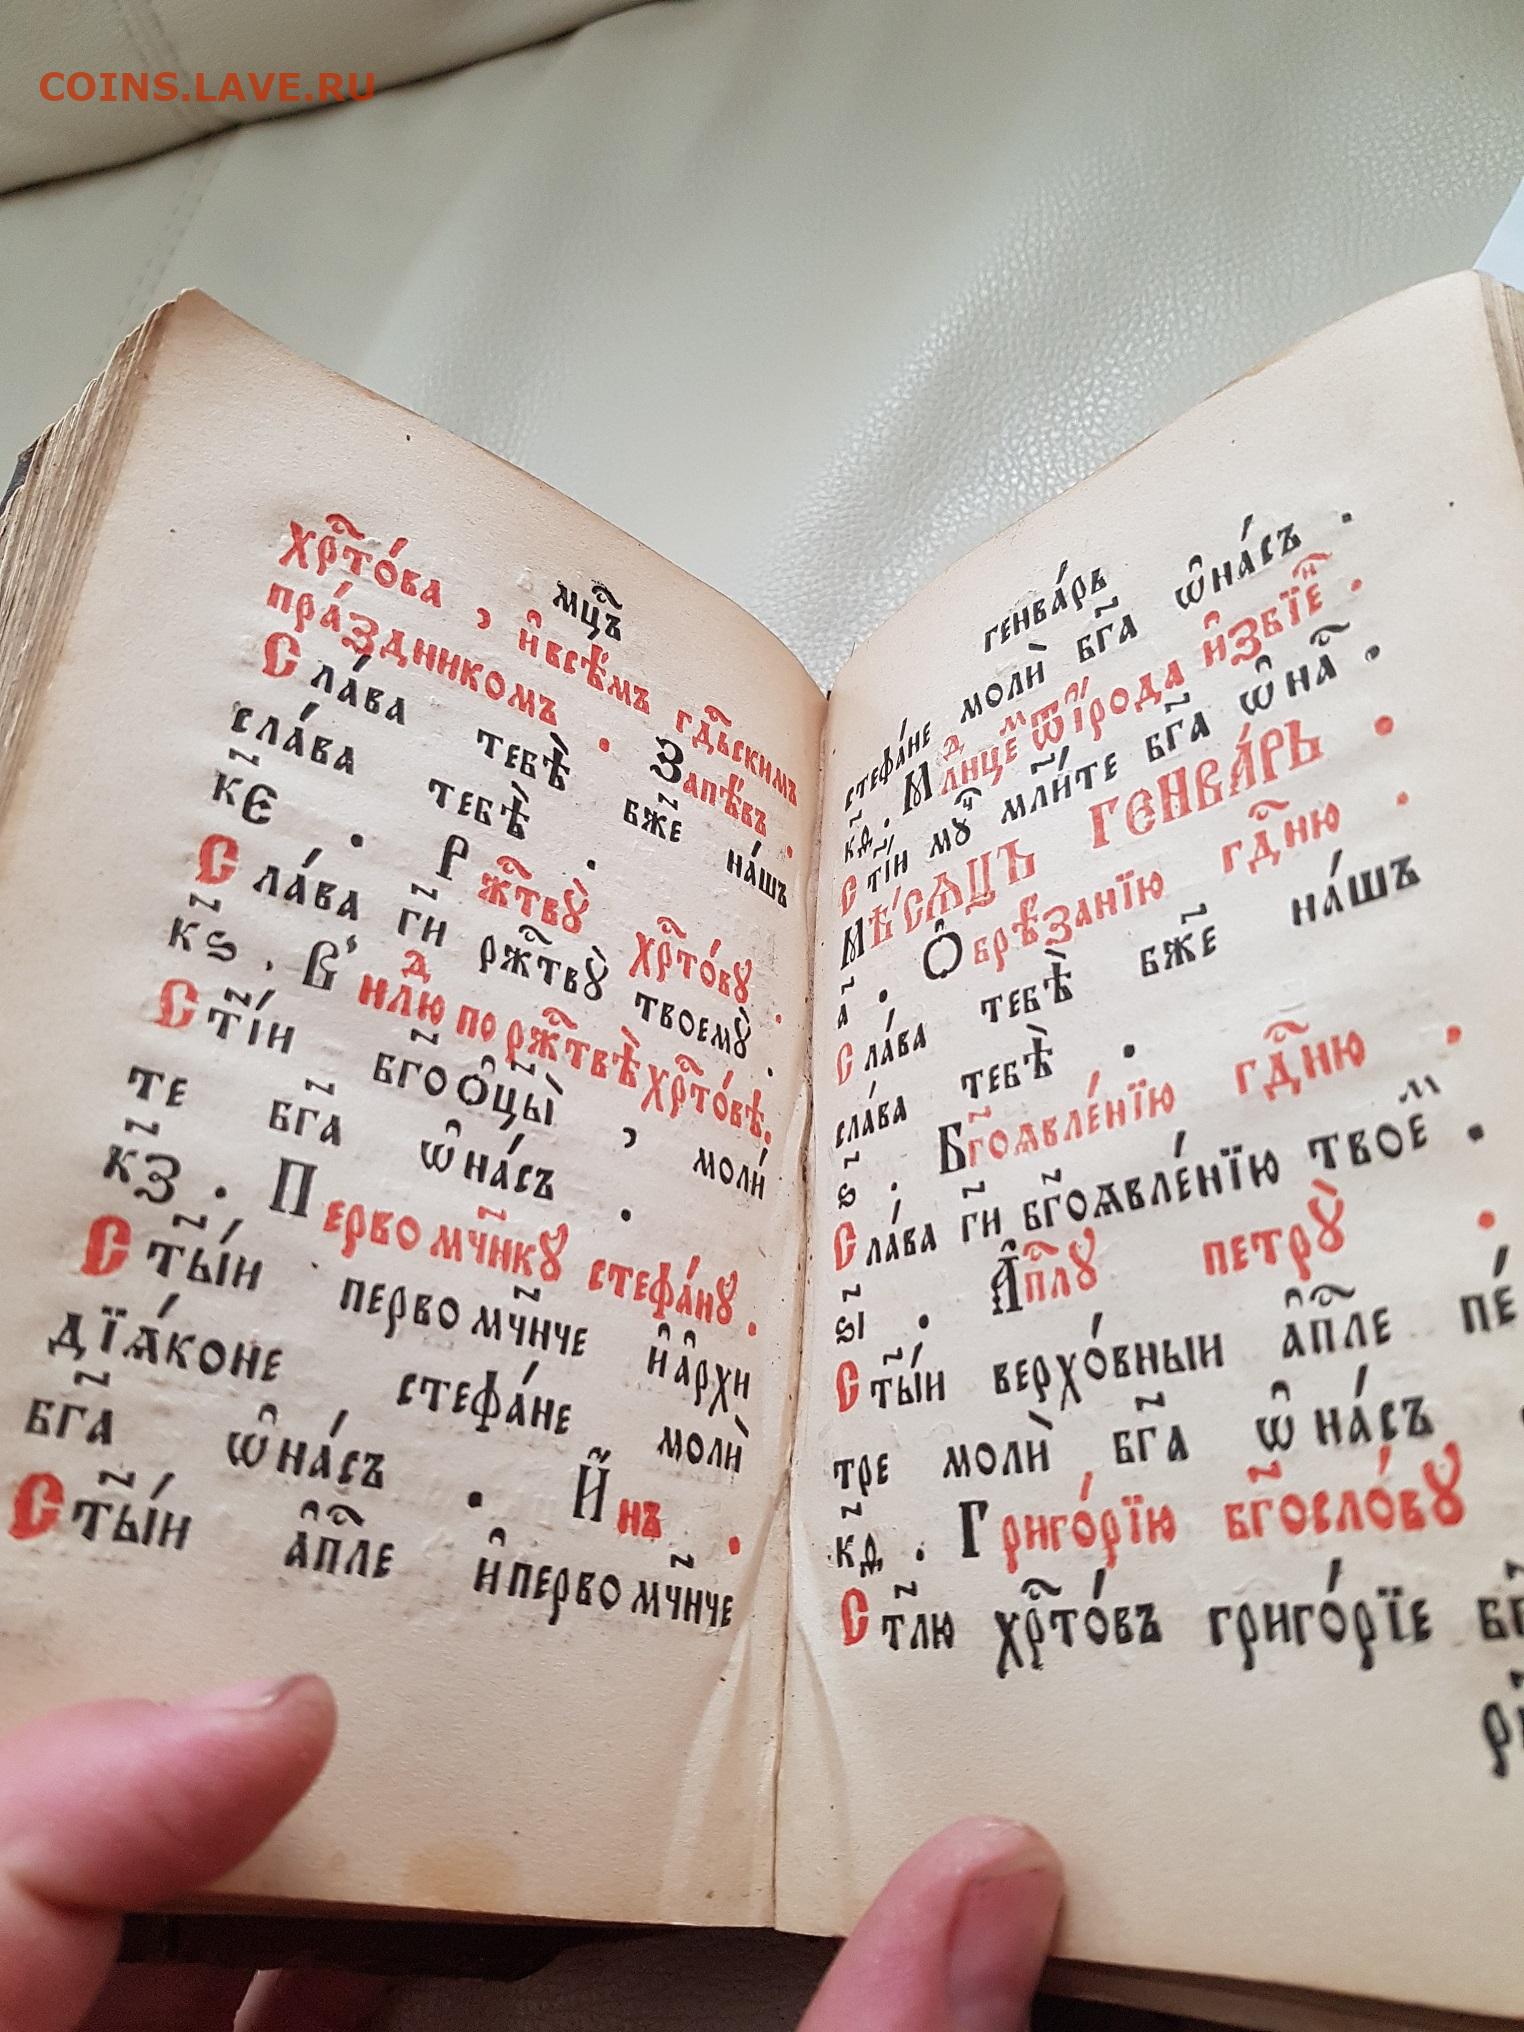 COINS.LAVE.RU
мц҃ъ
хрⷭ҇то́ва , и҆всѣ́мъ гдⷭ҇ьскимъ
пра́здникомъ . Запѣ́въ .
Сла́ва тебѣ̀ бж҃е на́шъ
сла́ва тебѣ̀ .
к҃е . Ржⷭ҇твꙋ̀ хрⷭ҇то́вꙋ .
Сла́ва гд҃и ржⷭ҇твꙋ̀ твоемꙋ̀ .
к҃ѕ . В' нлⷣю по ржⷭ҇твѣ̀ хрⷭ҇то́вѣ .
Ст҃і́и бг҃оѻ҆цы̀ , моли́
те бг҃а ѡ҆на́съ .
к҃з . Первомч҃никꙋ стефа́нꙋ .
Ст҃ы́и первомч҃нче и҆а҆рхи
дїѧ́коне стефа́не моли̂
бг҃а ѡ҆на́съ . И҆́нъ .
Ст҃ы́и а҆пⷭ҇ле и҆первомч҃нче
генва́рь
стефа́не моли̂ бг҃а ѡ҆на́съ .
к҃д . Млⷣнцеⷨ ѿи́рода и҆збїеⷩ҇ .
Ст҃і́и мꙋⷱ мл҃и́те бг҃а ѡ҆наⷭ҇ .
Мѣ́сѧцъ генва́рь .
а҃ . Ѻ҆брѣ́занїю гдⷭ҇ню .
Сла́ва тебѣ̀ бж҃е на́шъ
сла́ва тебѣ̀ .
ѕ҃ . Бг҃оѧвле́нїю гдⷭ҇ню .
Сла́ва гд҃и бг҃оѧвле́нїю твоеⷨ .
ѕ҃і . А҆пⷭ҇лꙋ петрꙋ̀ .
Ст҃ы́и верхо́вныи а҆пⷭ҇ле пе́
тре моли̂ бг҃а ѡ҆на́съ .
к҃д . Григо́рїю бг҃осло́вꙋ
Ст҃лю хрⷭ҇то́въ григо́рїе